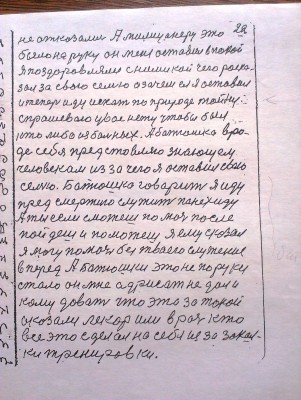 28
не отказали А милиционеру это
было на руку он меня оставил в покой
Я поздоровлялся с ними кой чего расска
зал за свою семью а зачем ея оставил
и теперь иду искать по природе тайну и
спрашеваю у вас нету чтобы был
кто либо из больных. А батюшка вро
де себя представляю знающем
человекам из за чего я оставил свою
семью. Батюшка говарит Я иду
пред смертию служит панехиду
А ты если сможеш помоч после
пойдеш и поможеш, я ему сказал
я могу помоч без твоего служения
в перед А батюшки это не по руки
стало он мне адрисат не дал и
кому довать что это за такой
сказали лекар или врач кто
все это сделал на себя из за закал-
ки тренировки.